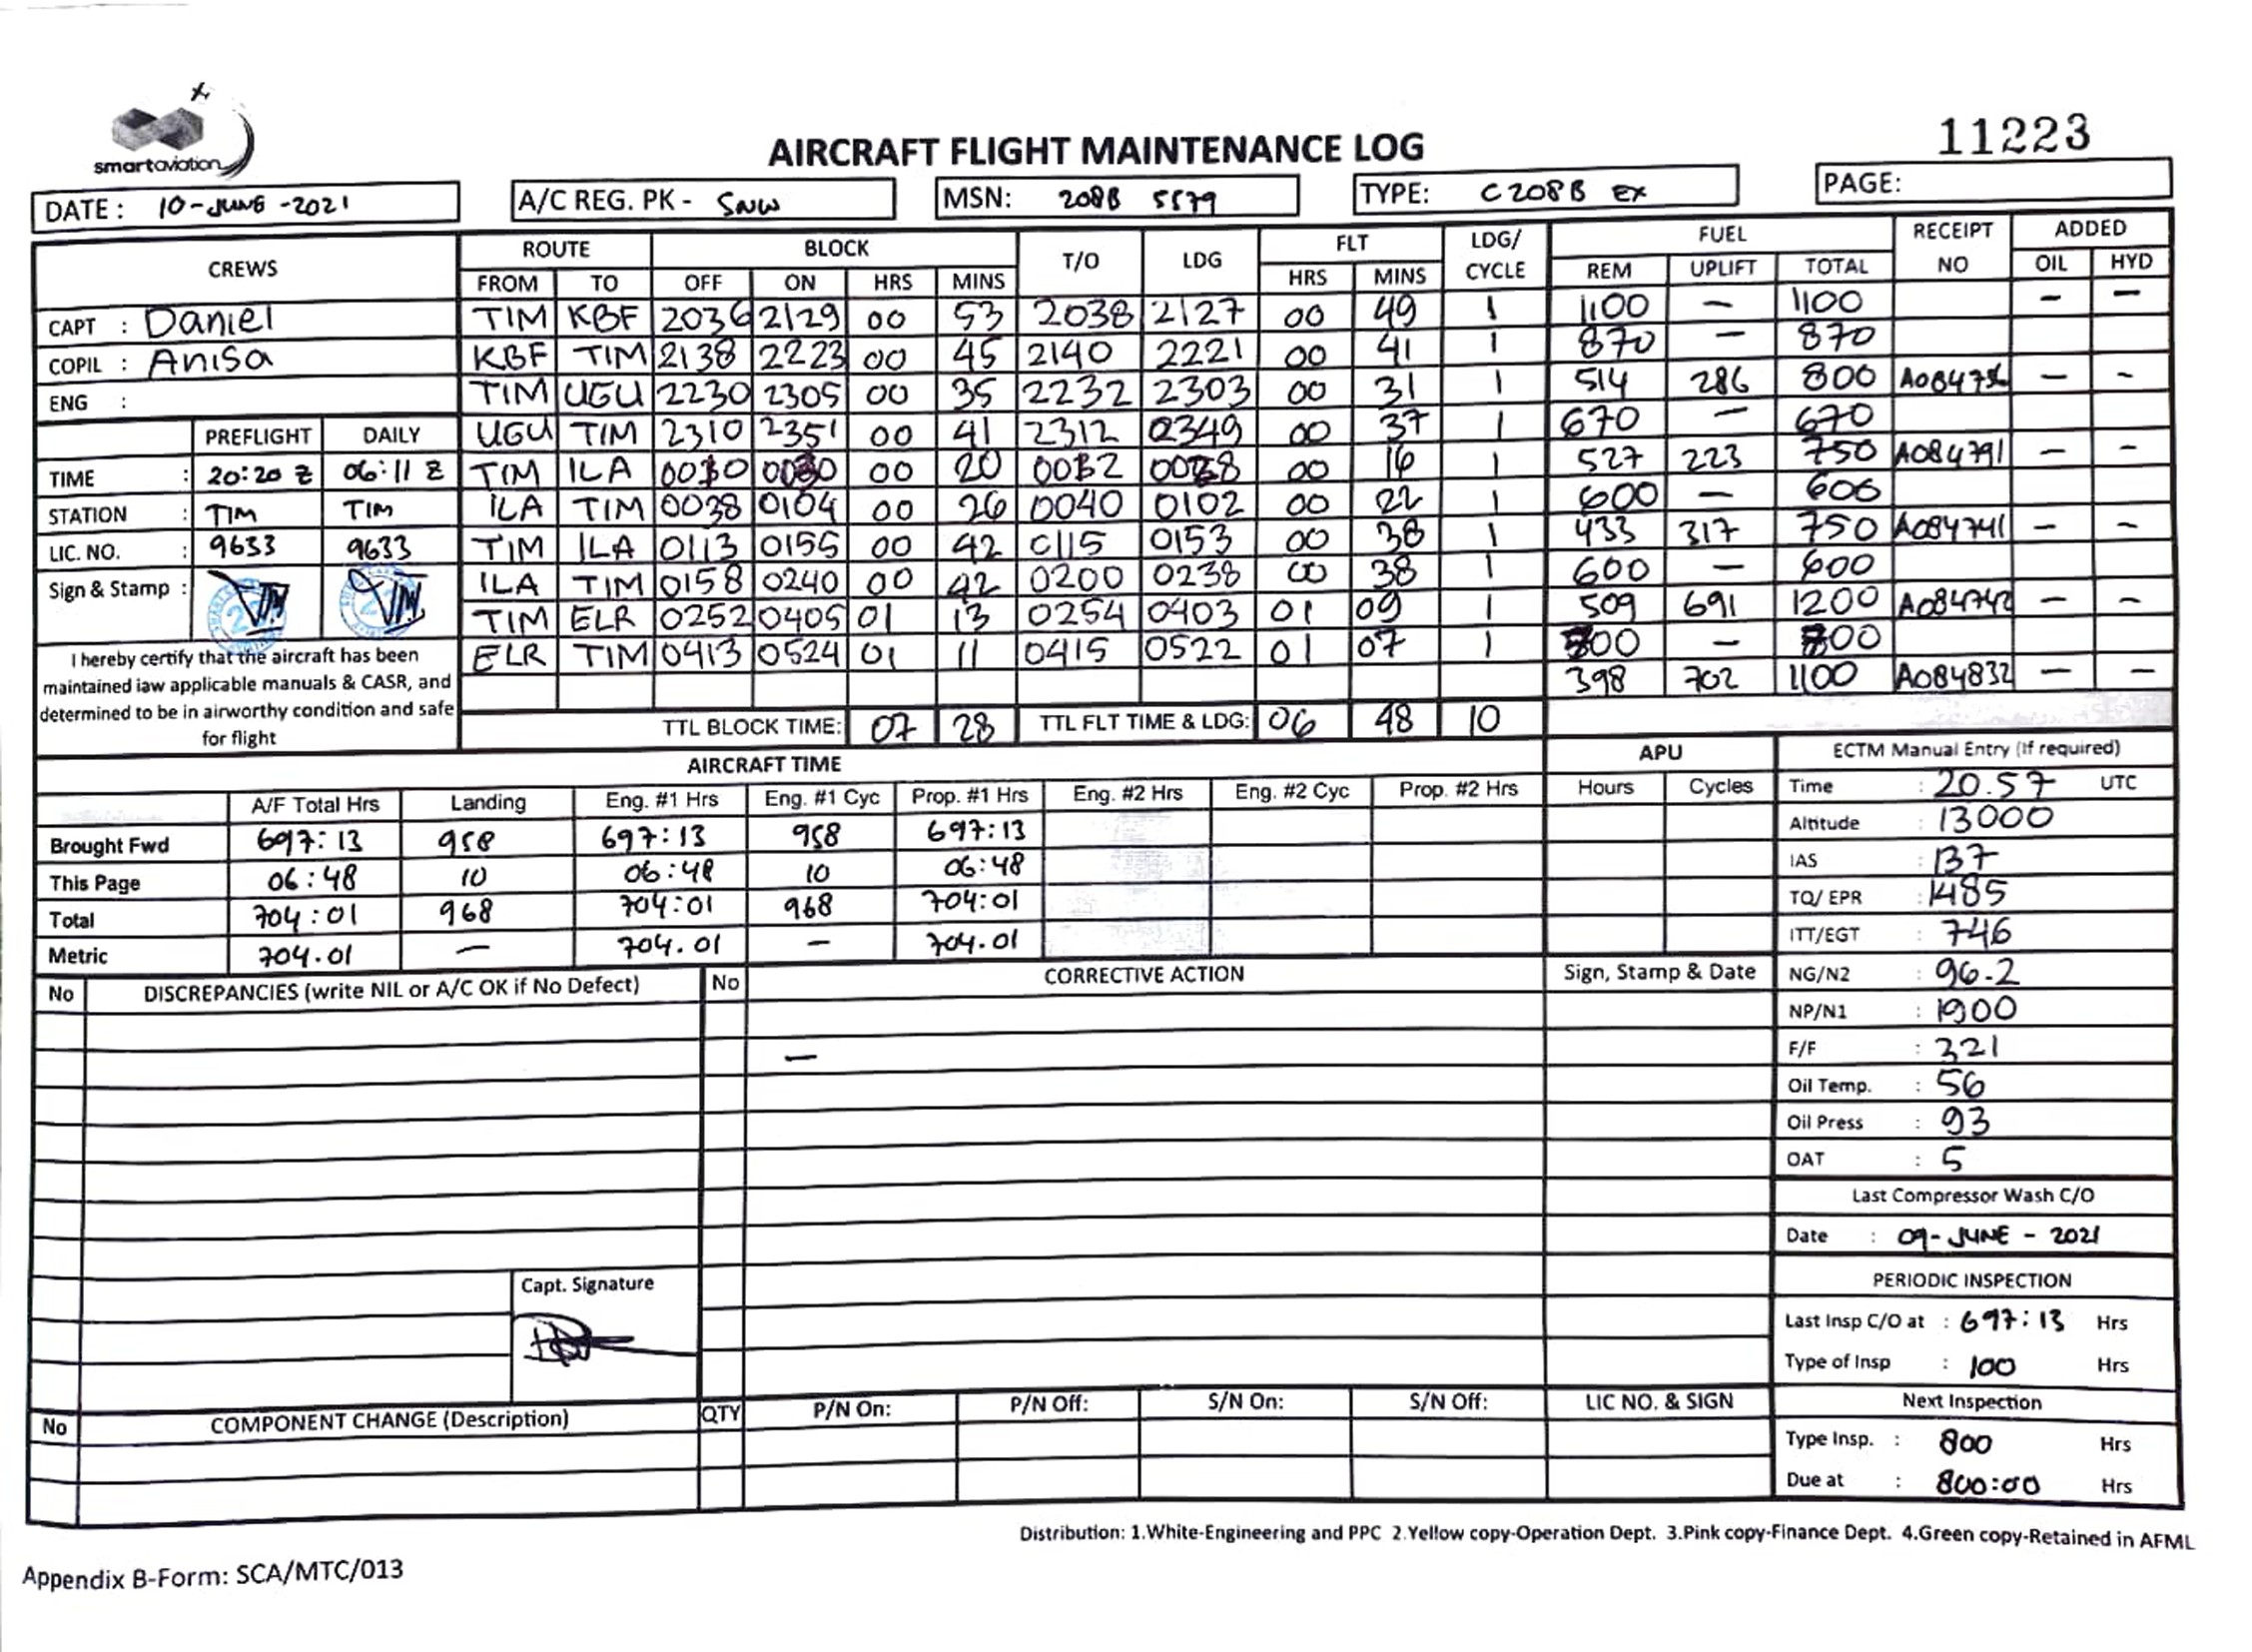 smartaviation
AIRCRAFT FLIGHT MAINTENANCE LOG
11223
DATE : 10-JUNE-2021 A/C REG. PK - SNW MSN: 208B 5579 TYPE: C208B EX PAGE:
CREWS ROUTE BLOCK T/O LDG FLT LDG/ CYCLE FUEL RECEIPT NO ADDED
FROM TO OFF ON HRS MINS HRS MINS REM UPLIFT TOTAL OIL HYD
CAPT : Daniel TIM KBF 2036 2129 00 53 2038 2127 00 49 1 1100 – 1100 – –
COPIL : Anisa KBF TIM 2138 2223 00 45 2140 2221 00 41 1 870 – 870
ENG : TIM UGU 2230 2305 00 35 2232 2303 00 31 1 514 286 800 – –
PREFLIGHT DAILY UGU TIM 2310 2351 00 41 2312 2349 00 37 1 670 – 670
TIME : 20:20 Z 06:11 Z TIM ILA 00 20 00 16 1 527 223 750 A084791 – –
STATION : TIM TIM ILA TIM 0038 0104 00 26 0040 0102 00 22 1 600 – 600
LIC. NO. : 9633 9633 TIM ILA 0113 0155 00 42 0115 0153 00 38 1 433 317 750 A084741 – –
Sign & Stamp : ILA TIM 0158 0240 00 42 0200 0238 00 38 1 600 – 600
TIM ELR 0252 0405 01 13 0254 0403 01 09 1 509 691 1200 A084742 – –
ELR TIM 0413 0524 01 11 0415 0522 01 07 1 –
398 702 1100 A084832 – –
I hereby certify that the aircraft has been
maintained iaw applicable manuals & CASR, and
determined to be in airworthy condition and safe
for flight
TTL BLOCK TIME: 07 28 TTL FLT TIME & LDG: 06 48 10
AIRCRAFT TIME APU
A/F Total Hrs Landing Eng. #1 Hrs Eng. #1 Cyc Prop. #1 Hrs Eng. #2 Hrs Eng. #2 Cyc Prop. #2 Hrs Hours Cycles
Brought Fwd 697:13 958 697:13 958 697:13
This Page 06:48 10 06:48 10 06:48
Total 704:01 968 704:01 968 704:01
Metric 704.01 – 704.01 – 704.01
ECTM Manual Entry (If required)
Time : 20.57 UTC
Altitude : 13000
IAS : 137
TQ/ EPR : 1485
ITT/EGT : 746
NG/N2 : 96.2
NP/N1 : 1900
F/F : 321
Oil Temp. : 56
Oil Press : 93
OAT : 5
Last Compressor Wash C/O
Date : 09-JUNE-2021
PERIODIC INSPECTION
Last Insp C/O at : 697:13 Hrs
Type of Insp : 100 Hrs
Next Inspection
Type Insp. : 800 Hrs
Due at : 800:00 Hrs
No DISCREPANCIES (write NIL or A/C OK if No Defect) No CORRECTIVE ACTION Sign, Stamp & Date
–
Capt. Signature
No COMPONENT CHANGE (Description) QTY P/N On: P/N Off: S/N On: S/N Off: LIC NO. & SIGN
Distribution: 1.White-Engineering and PPC 2.Yellow copy-Operation Dept. 3.Pink copy-Finance Dept. 4.Green copy-Retained in AFML
Appendix B-Form: SCA/MTC/013